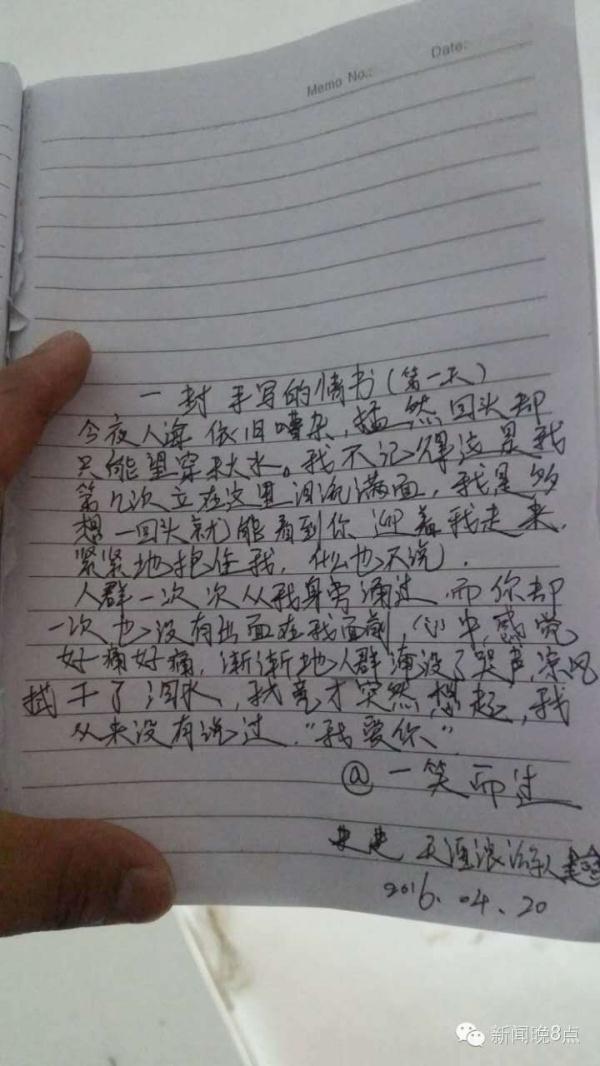 Memo No.:
Date:
一封手写的情书(第一天)
今夜人海依旧嘈杂,猛然回头却
只能望穿秋水。我不记得这是我
第几次立在这里泪流满面,我是多
想一回头就能看到你迎着我走来,
紧紧地抱住我,什么也不说,
人群一次次从我身旁涌过而你却
一次也没有出面在我面前,心中,感觉
好痛好痛,渐渐地人群淹没了哭声,凉风
拭干了泪水,我竟才突然想起,我
从来没有说过"我爱你"
@一笑而过
天涯浪
2016.04.20
新闻晚8点